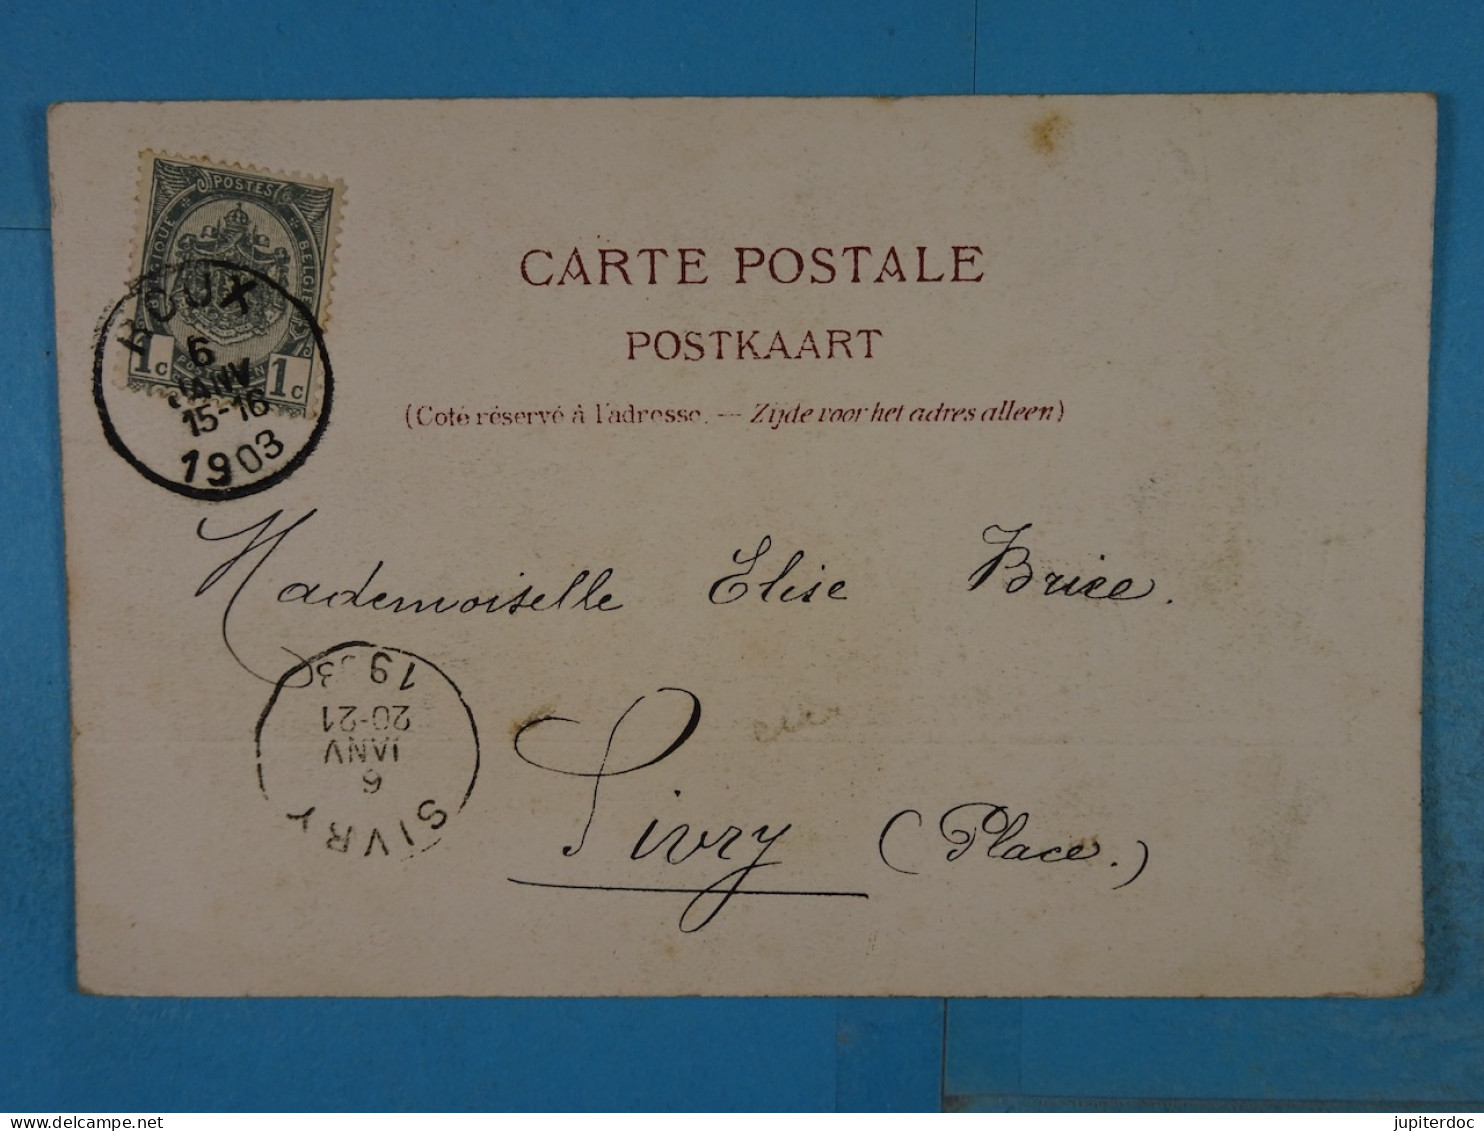 POSTES
BELGIQUE
BELGIË
1c
1c
ROUX
6
JANV
15-16
1903
CARTE POSTALE
POSTKAART
(Coté réservé à l'adresse. — Zijde voor het adres alleen)
Mademoiselle Elise Brice.
SIVRY
6
JANV
20-21
1903
Sivry (Place.)
jupiterdoc